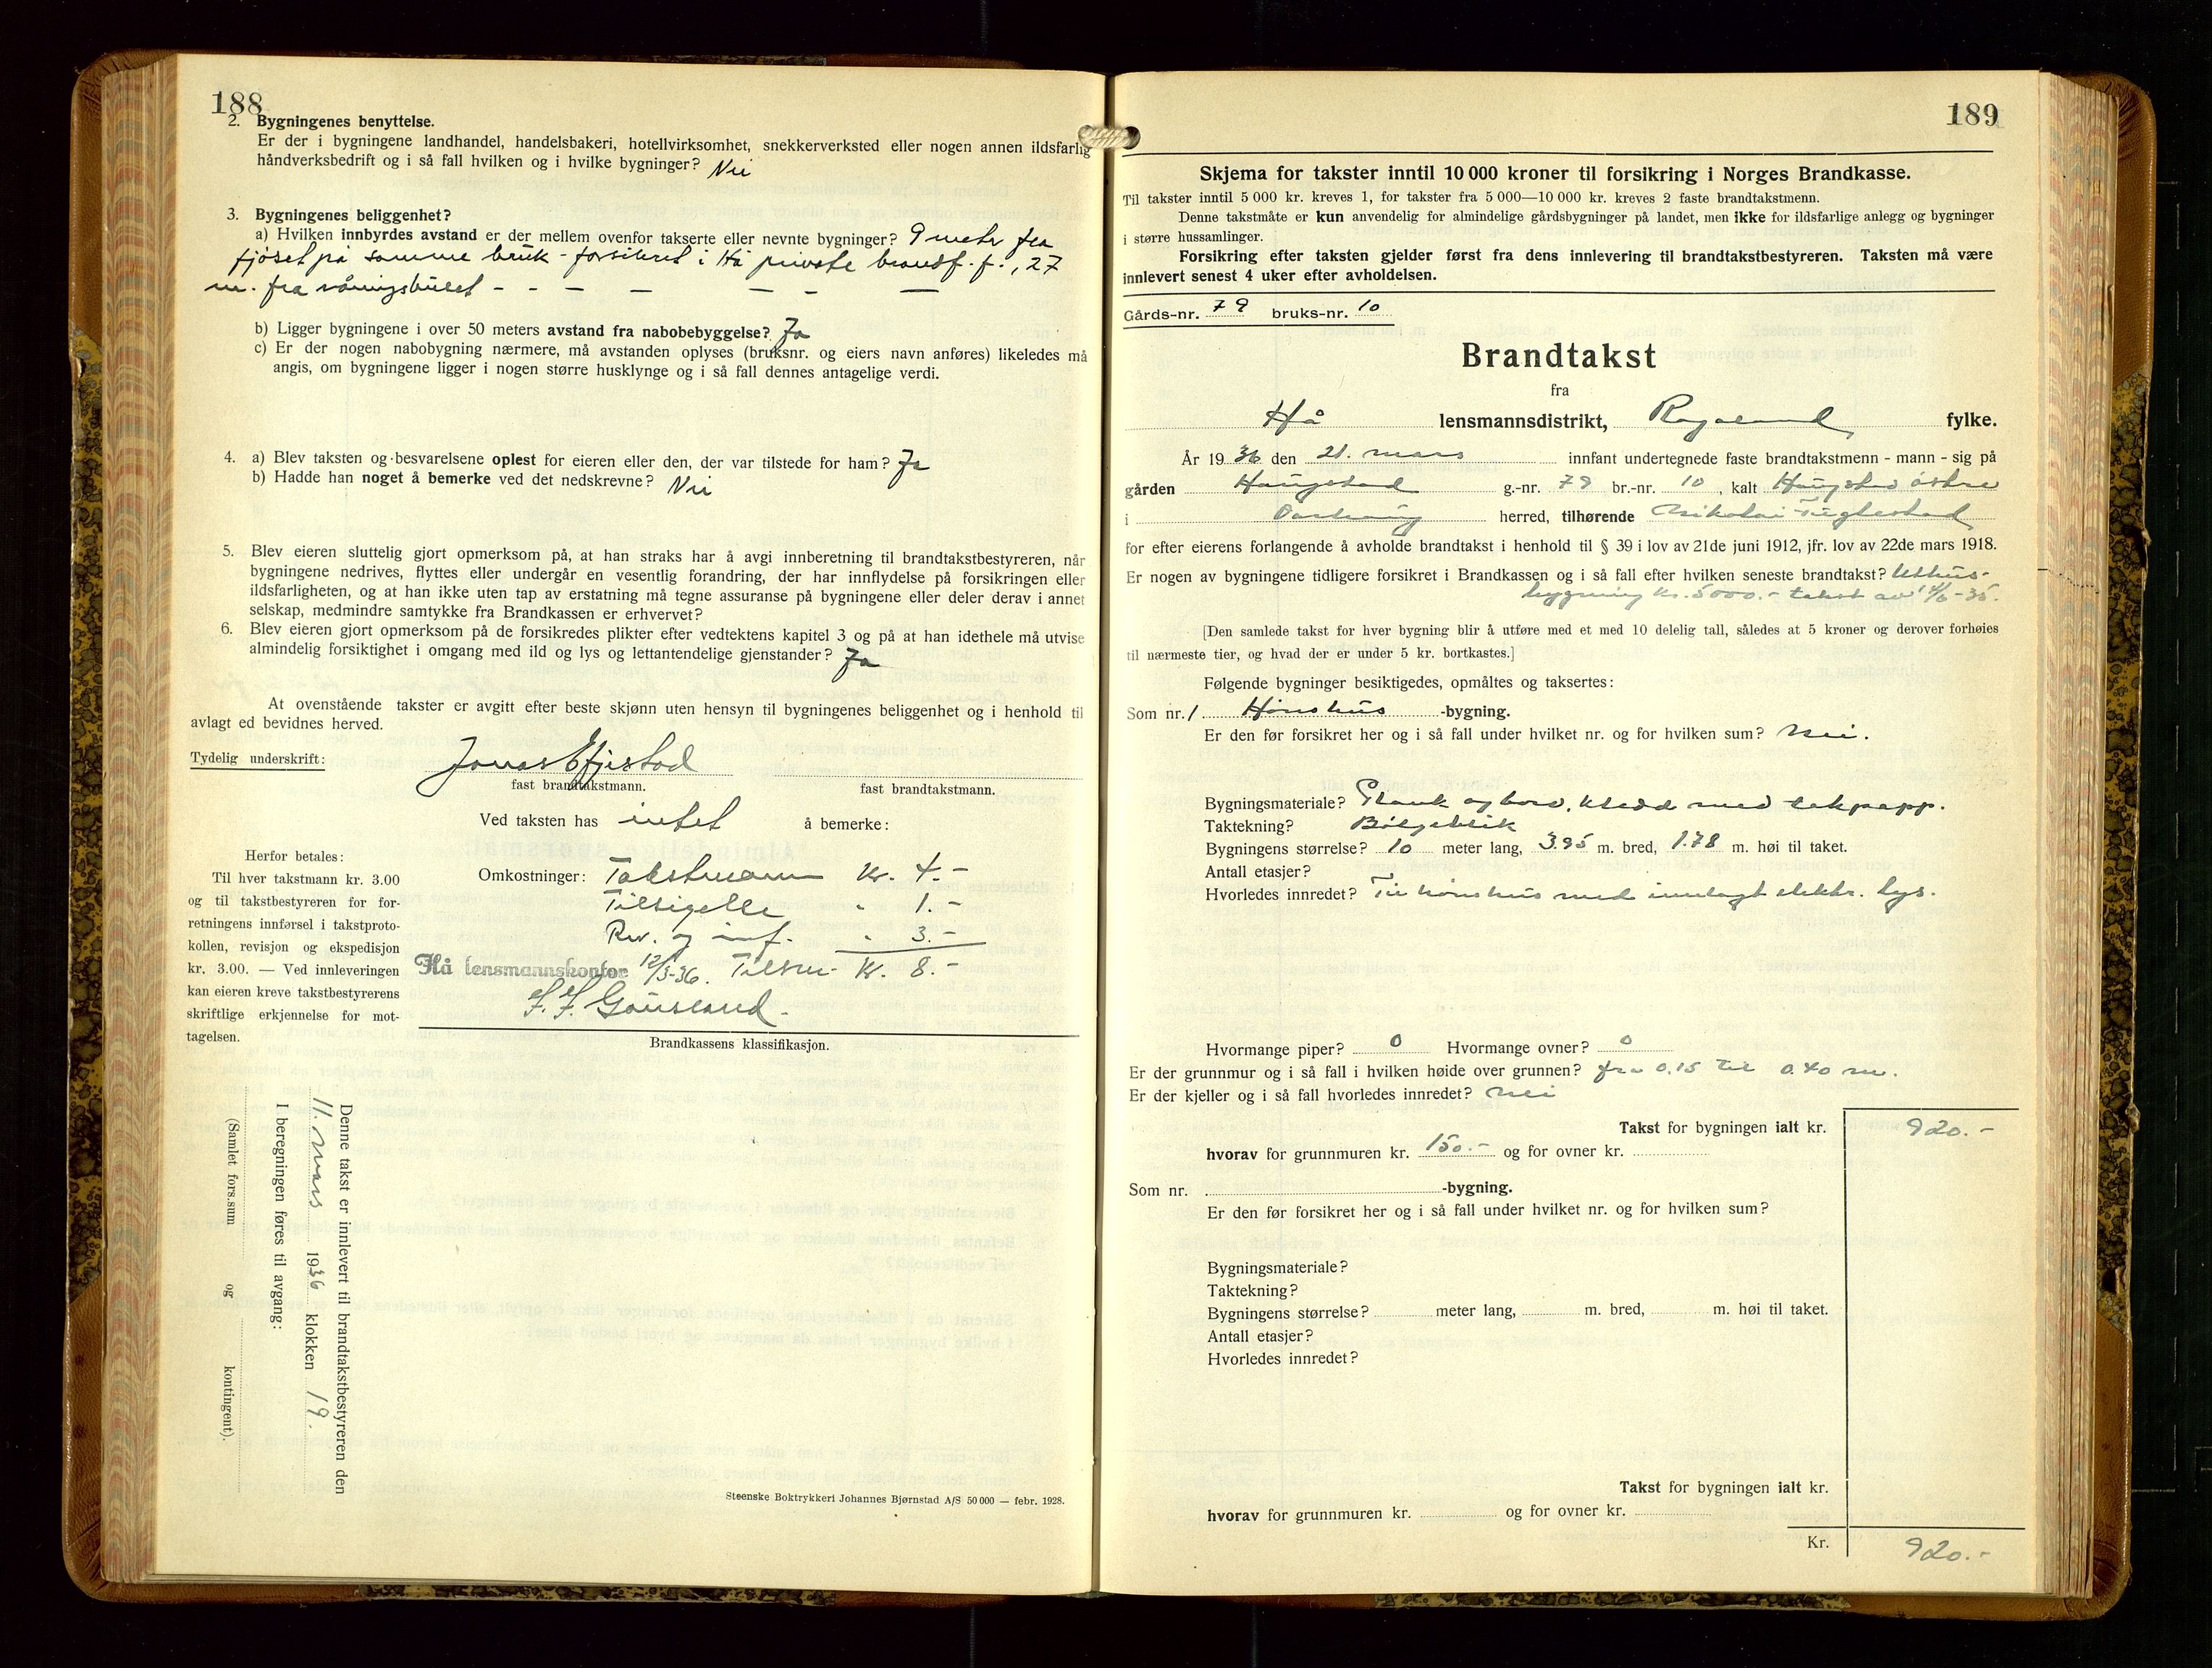 188
2. Bygningenes benyttelse.
Er der i bygningene landhandel, handelsbakeri, hotellvirksomhet, snekkerverksted eller nogen annen ildsfarlig
håndverksbedrift og i så fall hvilken og i hvilke bygninger? Nei
3. Bygningenes beliggenhet?
a) Hvilken innbyrdes avstand er der mellem ovenfor takserte eller nevnte bygninger? 9 meter fra
fjöset på samme bruk - forsikret i Hå private brandf. f., 27
m. fra våningshuset - - - - - - -
b) Ligger bygningene i over 50 meters avstand fra nabobebyggelse? Ja
c) Er der nogen nabobygning nærmere, må avstanden oplyses (bruksnr. og eiers navn anføres) likeledes må
angis, om bygningene ligger i nogen større husklynge og i så fall dennes antagelige verdi.
4. a) Blev taksten og besvarelsene oplest for eieren eller den, der var tilstede for ham? Ja
b) Hadde han noget å bemerke ved det nedskrevne? Nei
5. Blev eieren sluttelig gjort opmerksom på, at han straks har å avgi innberetning til brandtakstbestyreren, når
bygningene nedrives, flyttes eller undergår en vesentlig forandring, der har innflydelse på forsikringen eller
ildsfarligheten, og at han ikke uten tap av erstatning må tegne assuranse på bygningene eller deler derav i annet
selskap, medmindre samtykke fra Brandkassen er erhvervet?
6. Blev eieren gjort opmerksom på de forsikredes plikter efter vedtektens kapitel 3 og på at han idethele må utvise
almindelig forsiktighet i omgang med ild og lys og lettantendelige gjenstander? Ja
At ovenstående takster er avgitt efter beste skjønn uten hensyn til bygningenes beliggenhet og i henhold til
avlagt ed bevidnes herved.
Tydelig underskrift: Jonas Efjestad
fast brandtakstmann. fast brandtakstmann.
Ved taksten has intet å bemerke:
Herfor betales:
Til hver takstmann kr. 3.00
og til takstbestyreren for for-
retningens innførsel i takstproto-
kollen, revisjon og ekspedisjon
kr. 3.00. — Ved innleveringen
kan eieren kreve takstbestyrerens
skriftlige erkjennelse for mot-
tagelsen.
Omkostninger: Takstmann Kr. 4.-
Tilsigelle " 1.-
Rev. og inf. " 3.-
Hå lensmannskontor 12/3-36. Tilsm. Kr. 8.-
Gausland.
Brandkassens klassifikasjon.
Denne takst er innlevert til brandtakstbestyreren den
11. mars 1936 klokken 19.
I beregningen føres til avgang:
(Samlet fors.sum og kontingent).
Steenske Boktrykkeri Johannes Bjørnstad A/S 50 000 — febr. 1928.
189
Skjema for takster inntil 10 000 kroner til forsikring i Norges Brandkasse.
Til takster inntil 5 000 kr. kreves 1, for takster fra 5 000—10 000 kr. kreves 2 faste brandtakstmenn.
Denne takstmåte er kun anvendelig for almindelige gårdsbygninger på landet, men ikke for ildsfarlige anlegg og bygninger
i større hussamlinger.
Forsikring efter taksten gjelder først fra dens innlevering til brandtakstbestyreren. Taksten må være
innlevert senest 4 uker efter avholdelsen.
Gårds-nr. 79 bruks-nr. 10
Brandtakst
fra
Hå lensmannsdistrikt, Rogaland fylke.
År 1936 den 21. mars innfant undertegnede faste brandtakstmenn - mann - sig på
gården Haugstad g.-nr. 79 br.-nr. 10, kalt Haugstad östre
i herred, tilhørende Nikolai Tuglestad
for efter eierens forlangende å avholde brandtakst i henhold til § 39 i lov av 21de juni 1912, jfr. lov av 22de mars 1918.
Er nogen av bygningene tidligere forsikret i Brandkassen og i så fall efter hvilken seneste brandtakst? Uthus-
bygning kr. 5000.- takst av /6-35.
[Den samlede takst for hver bygning blir å utføre med et med 10 delelig tall, således at 5 kroner og derover forhøies
til nærmeste tier, og hvad der er under 5 kr. bortkastes.]
Følgende bygninger besiktigedes, opmåltes og taksertes:
Som nr. 1 Hönshus -bygning.
Er den før forsikret her og i så fall under hvilket nr. og for hvilken sum? Nei.
Bygningsmateriale? Plank og bord, kledd med takpapp.
Taktekning? Bölgeblik
Bygningens størrelse? 10 meter lang, 3.95 m. bred, 1.78 m. høi til taket.
Antall etasjer?
Hvorledes innredet? Til hönshus med innlagt elektr. lys.
Hvormange piper? 0 Hvormange ovner? 0
Er der grunnmur og i så fall i hvilken høide over grunnen? fra 0,15 til 0.40 m.
Er der kjeller og i så fall hvorledes innredet? Nei
Takst for bygningen ialt kr. 920.-
hvorav for grunnmuren kr. 150.- og for ovner kr.
Som nr. -bygning.
Er den før forsikret her og i så fall under hvilket nr. og for hvilken sum?
Bygningsmateriale?
Taktekning?
Bygningens størrelse? meter lang, m. bred, m. høi til taket.
Antall etasjer?
Hvorledes innredet?
Takst for bygningen ialt kr.
hvorav for grunnmuren kr. og for ovner kr.
Kr. 920.-